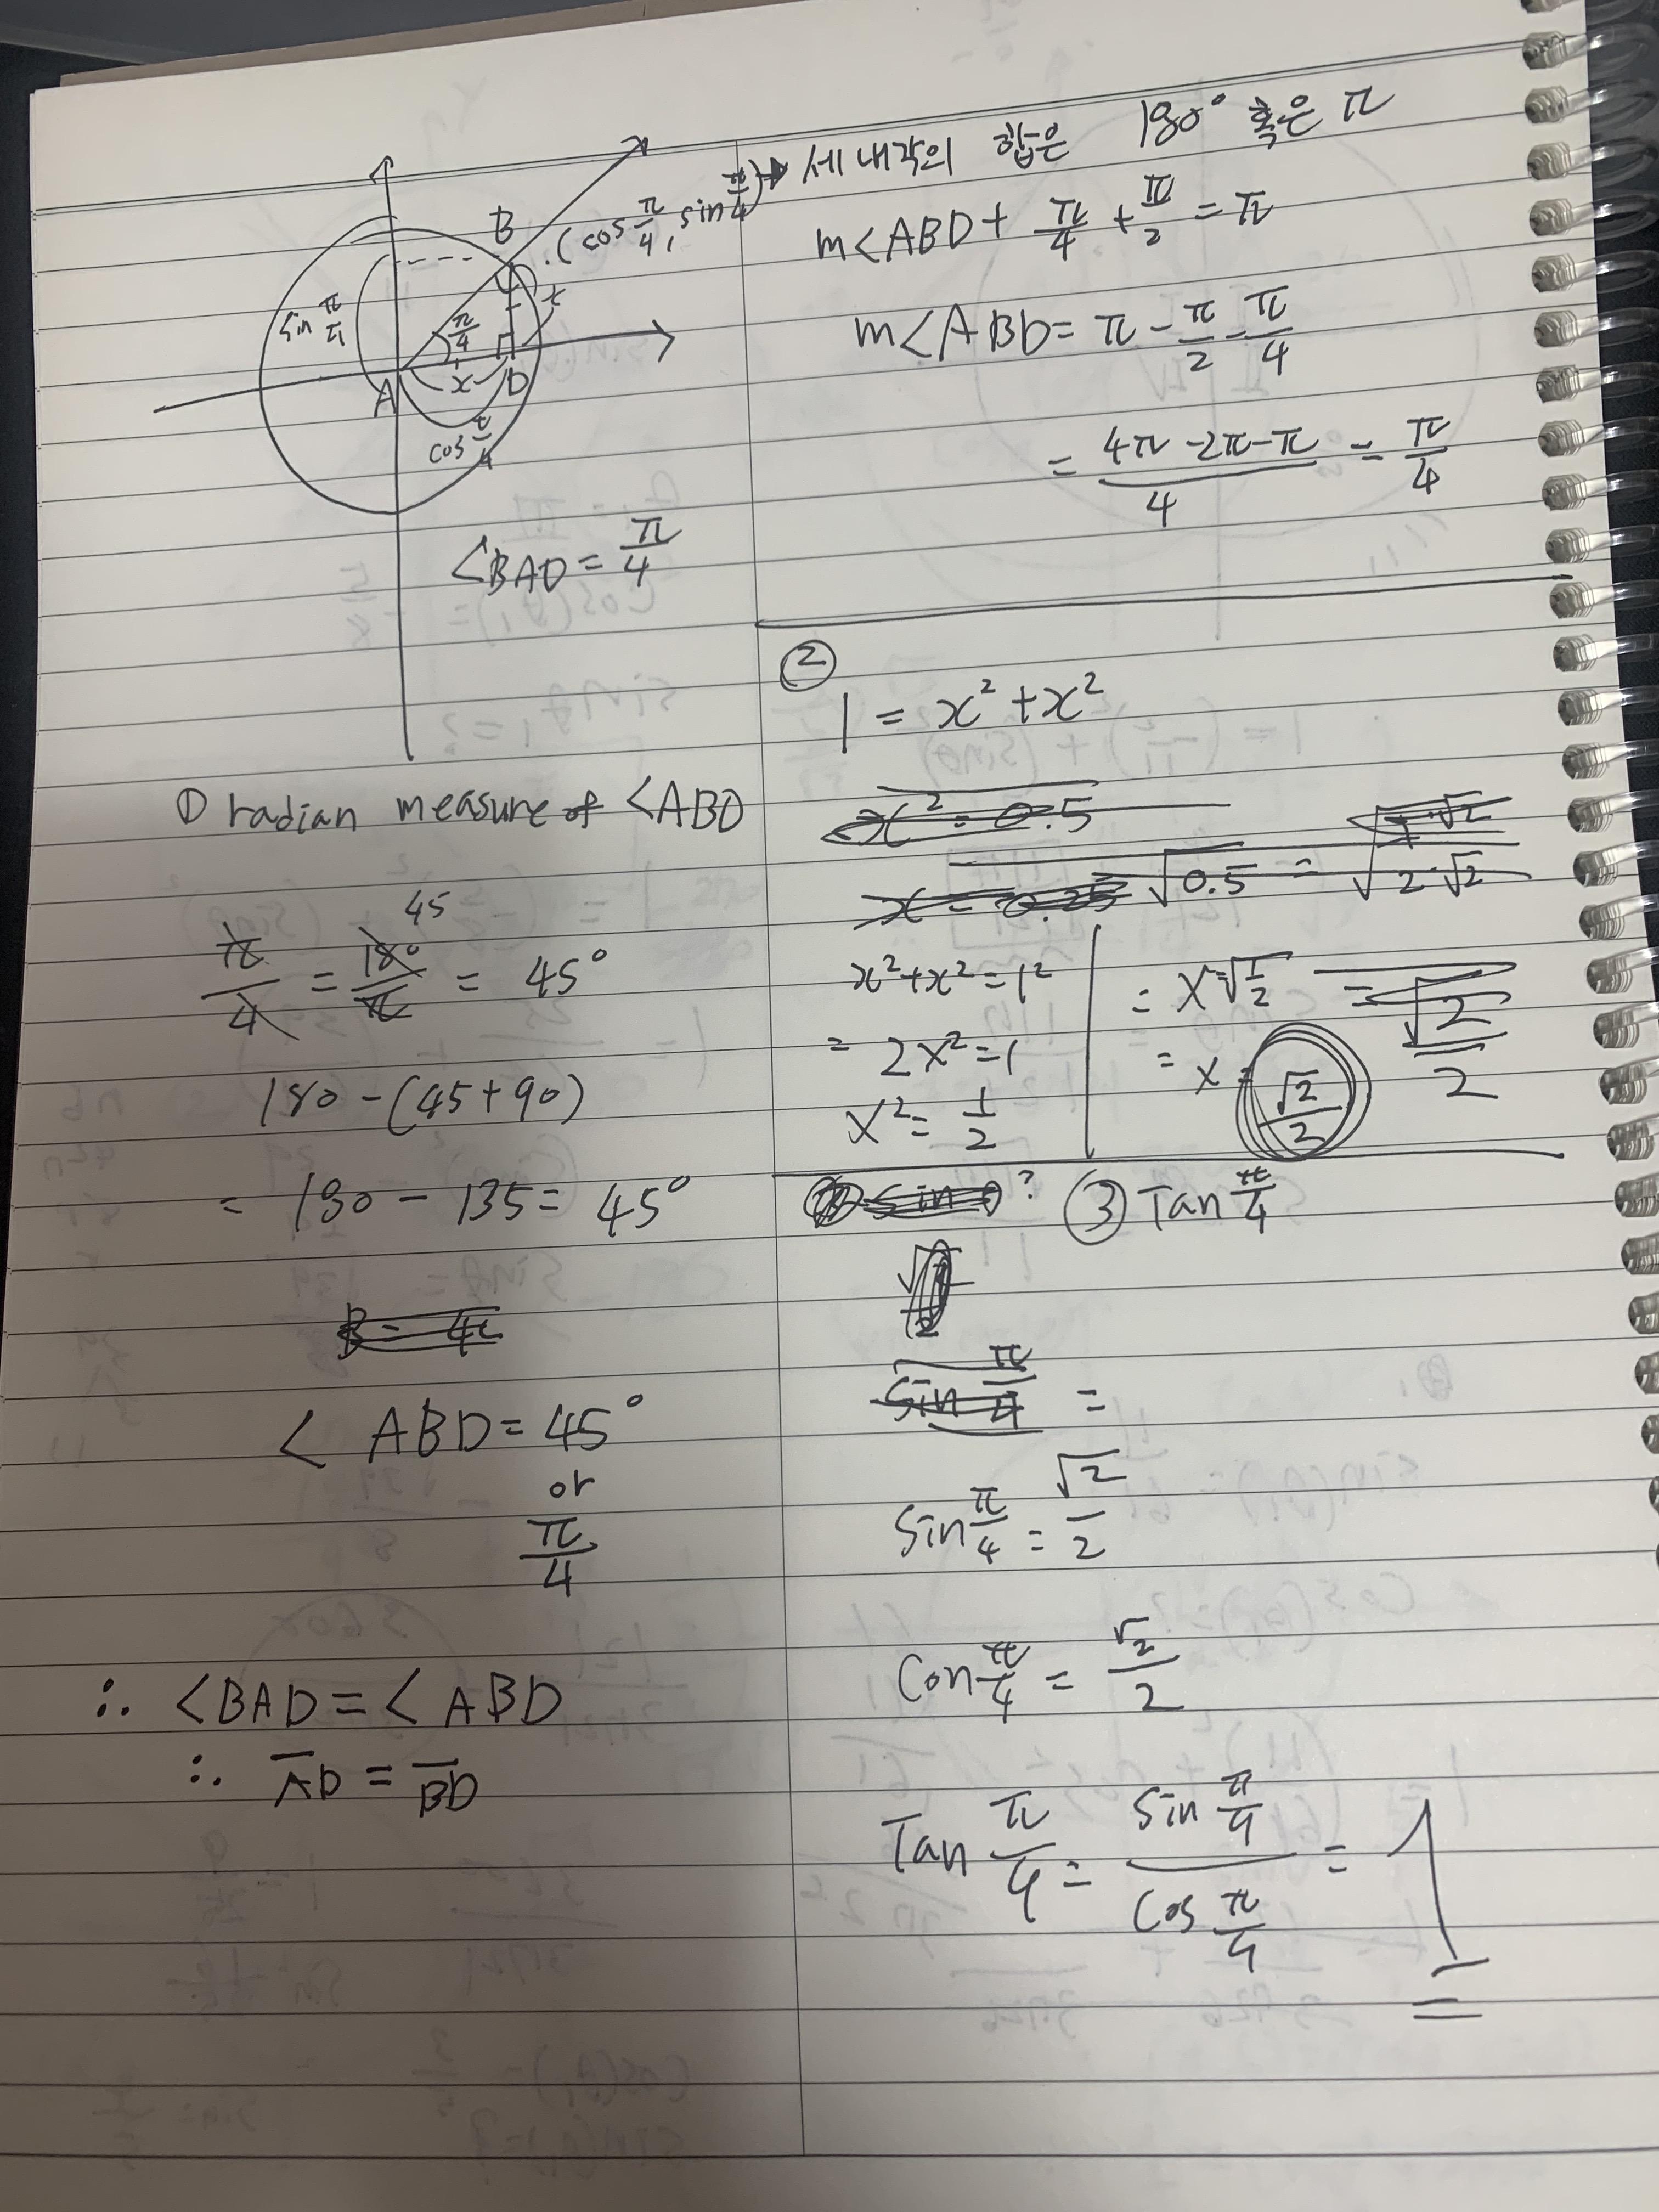 B
(cos π/4, sin π/4)
sin π/4
π/4
x
x
A
D
cos π/4
<BAD = π/4
→ 세 내각의 합은 180° 혹은 π
m<ABD + π/4 + π/2 = π
m<ABD = π - π/2 - π/4
= (4π - 2π - π)/4 = π/4
① radian measure of <ABD
45
π/4 = 180°/π = 45°
180 - (45 + 90)
= 180 - 135 = 45°
< ABD = 45°
or
π/4
∴ <BAD = < ABD
∴ AD = BD
②
1 = x² + x²
x² = 0.5
x = 0.25 √0.5 =
x² + x² = 1²
= 2x² = 1
x² = 1/2
= x = √1/2 = √2/2
= x = √2/2
③ Tan π/4
sin π/4 =
Sin π/4 = √2/2
Con π/4 = √2/2
Tan π/4 = sin π/4 / Cos π/4 = 1